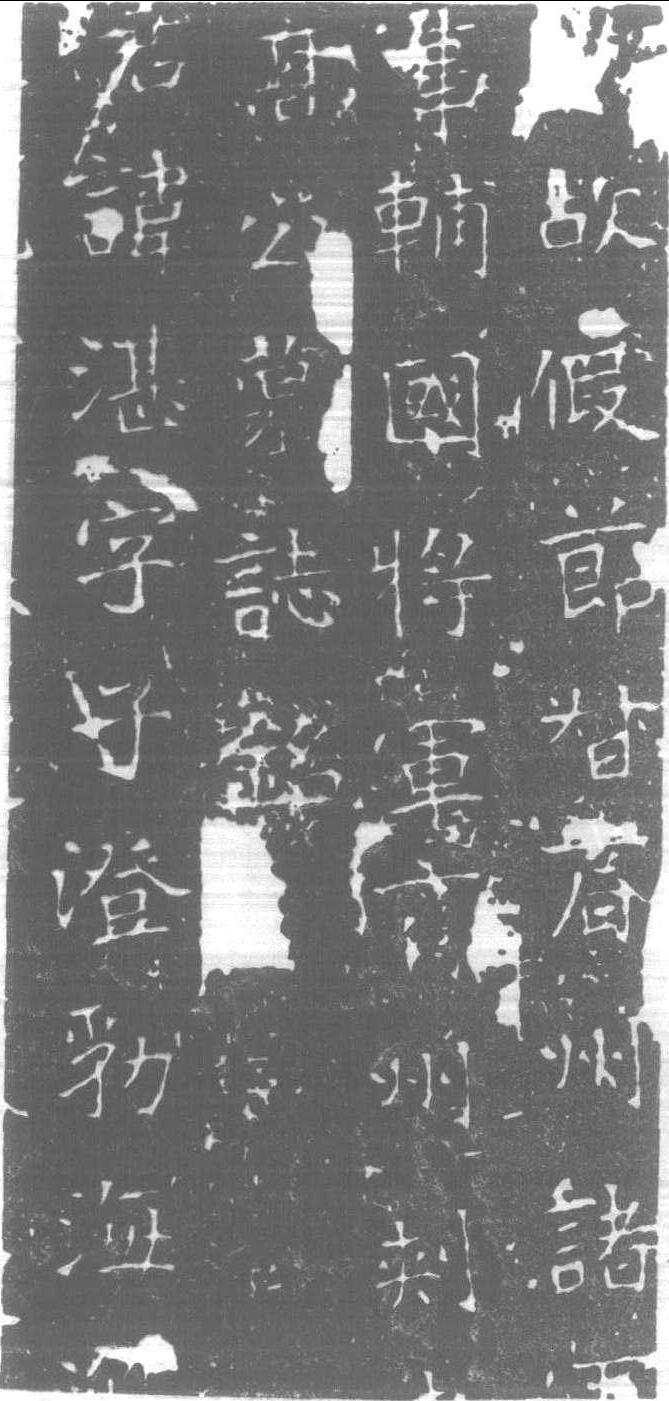 故假節督齊州諸
事輔國將軍齊州刺
高公墓誌銘
君諱湛字子澄勃海